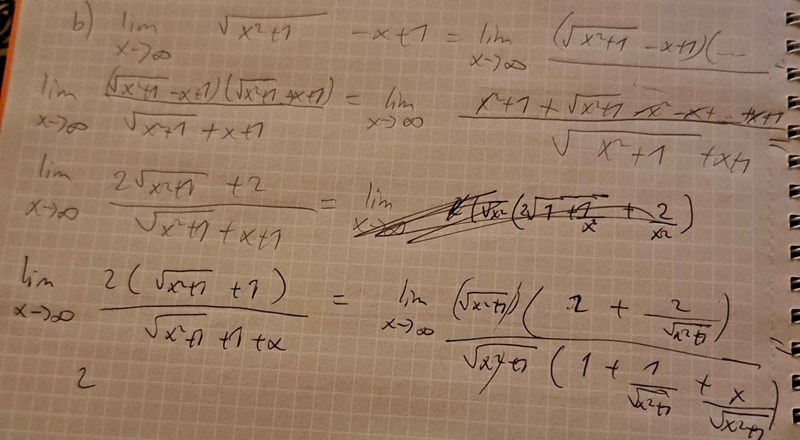 b) lim x→∞ √(x²+1) - x+1 = lim x→∞ (√(x²+1) - x+1)(...
lim x→∞ ((√(x²+1) - x+1)(√(x²+1) + x+1))/(√(x²+1) + x+1) = lim x→∞ (x²+1 + √(x²+1) - x² - x + ... + x+1)/(√(x²+1) + x+1) =
lim x→∞ (2√(x²+1) + 2)/(√(x²+1) + x+1) = lim x→∞
lim x→∞ (2(√(x²+1) + 1))/(√(x²+1) + 1 + x) = lim x→∞ ((√(x²+1))(2 + 2/√(x²+1)))/(√(x²+1)(1 + 1/√(x²+1) + x/√(x²+1))) =
2